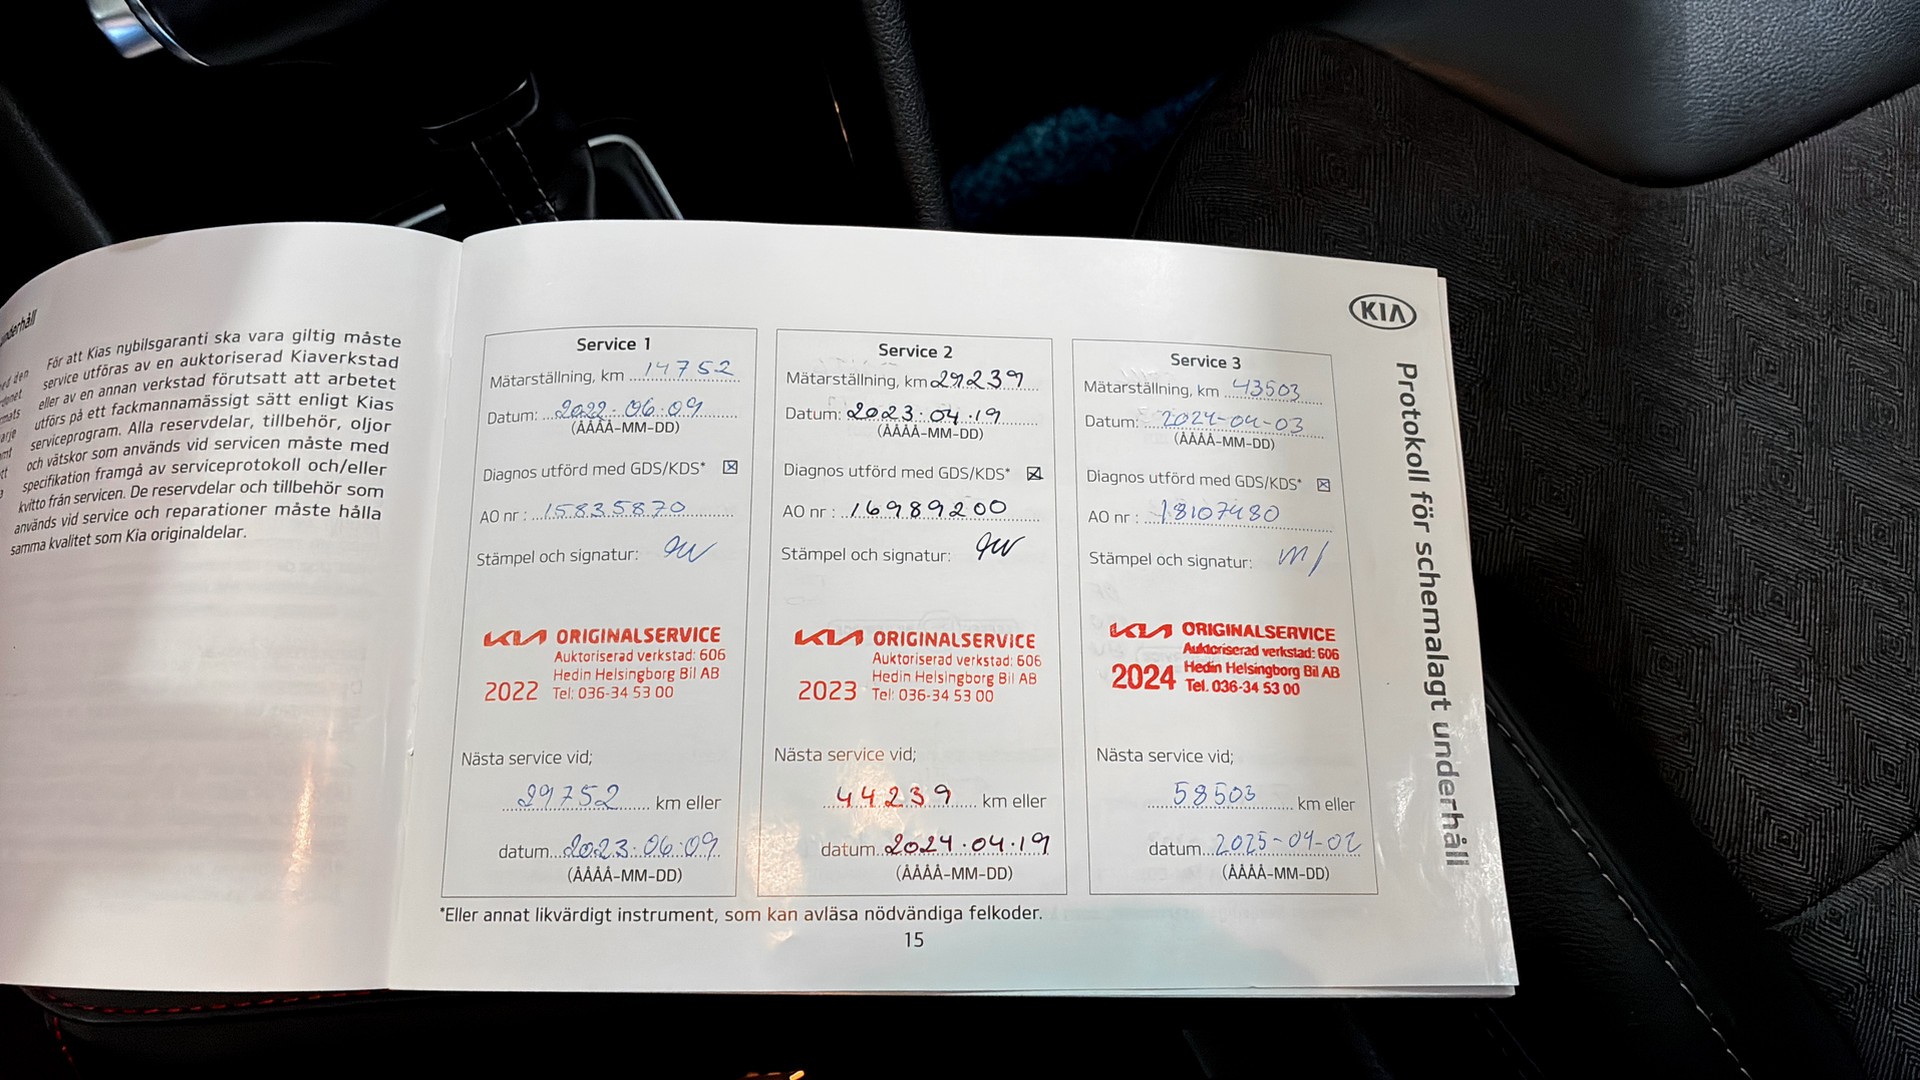 underhåll
För att Kias nybilsgaranti ska vara giltig måste
service utföras av en auktoriserad Kiaverkstad
eller av en annan verkstad förutsatt att arbetet
utförs på ett fackmannamässigt sätt enligt Kias
serviceprogram. Alla reservdelar, tillbehör, oljor
och vätskor som används vid servicen måste med
specifikation framgå av serviceprotokoll och/eller
kvitto från servicen. De reservdelar och tillbehör som
används vid service och reparationer måste hålla
samma kvalitet som Kia originaldelar.
KIA
Protokoll för schemalagt underhåll
Service 1
Mätarställning, km 14752
Datum: 2022-06-09
(ÅÅÅÅ-MM-DD)
Diagnos utförd med GDS/KDS*
AO nr : 15835870
Stämpel och signatur:
KIA ORIGINALSERVICE
Auktoriserad verkstad: 606
Hedin Helsingborg Bil AB
2022 Tel: 036-34 53 00
Nästa service vid;
29752 km eller
datum 2023-06-09
(ÅÅÅÅ-MM-DD)
Service 2
Mätarställning, km 29239
Datum: 2023.04.19
(ÅÅÅÅ-MM-DD)
Diagnos utförd med GDS/KDS*
AO nr : 16989200
Stämpel och signatur:
KIA ORIGINALSERVICE
Auktoriserad verkstad: 606
Hedin Helsingborg Bil AB
2023 Tel: 036-34 53 00
Nästa service vid;
44239 km eller
datum 2024.04.19
(ÅÅÅÅ-MM-DD)
Service 3
Mätarställning, km 43503
Datum: 2024-04-03
(ÅÅÅÅ-MM-DD)
Diagnos utförd med GDS/KDS*
AO nr : 18107480
Stämpel och signatur:
KIA ORIGINALSERVICE
Auktoriserad verkstad: 606
Hedin Helsingborg Bil AB
2024 Tel. 036-34 53 00
Nästa service vid;
58503 km eller
datum 2025-04-02
(ÅÅÅÅ-MM-DD)
*Eller annat likvärdigt instrument, som kan avläsa nödvändiga felkoder.
15